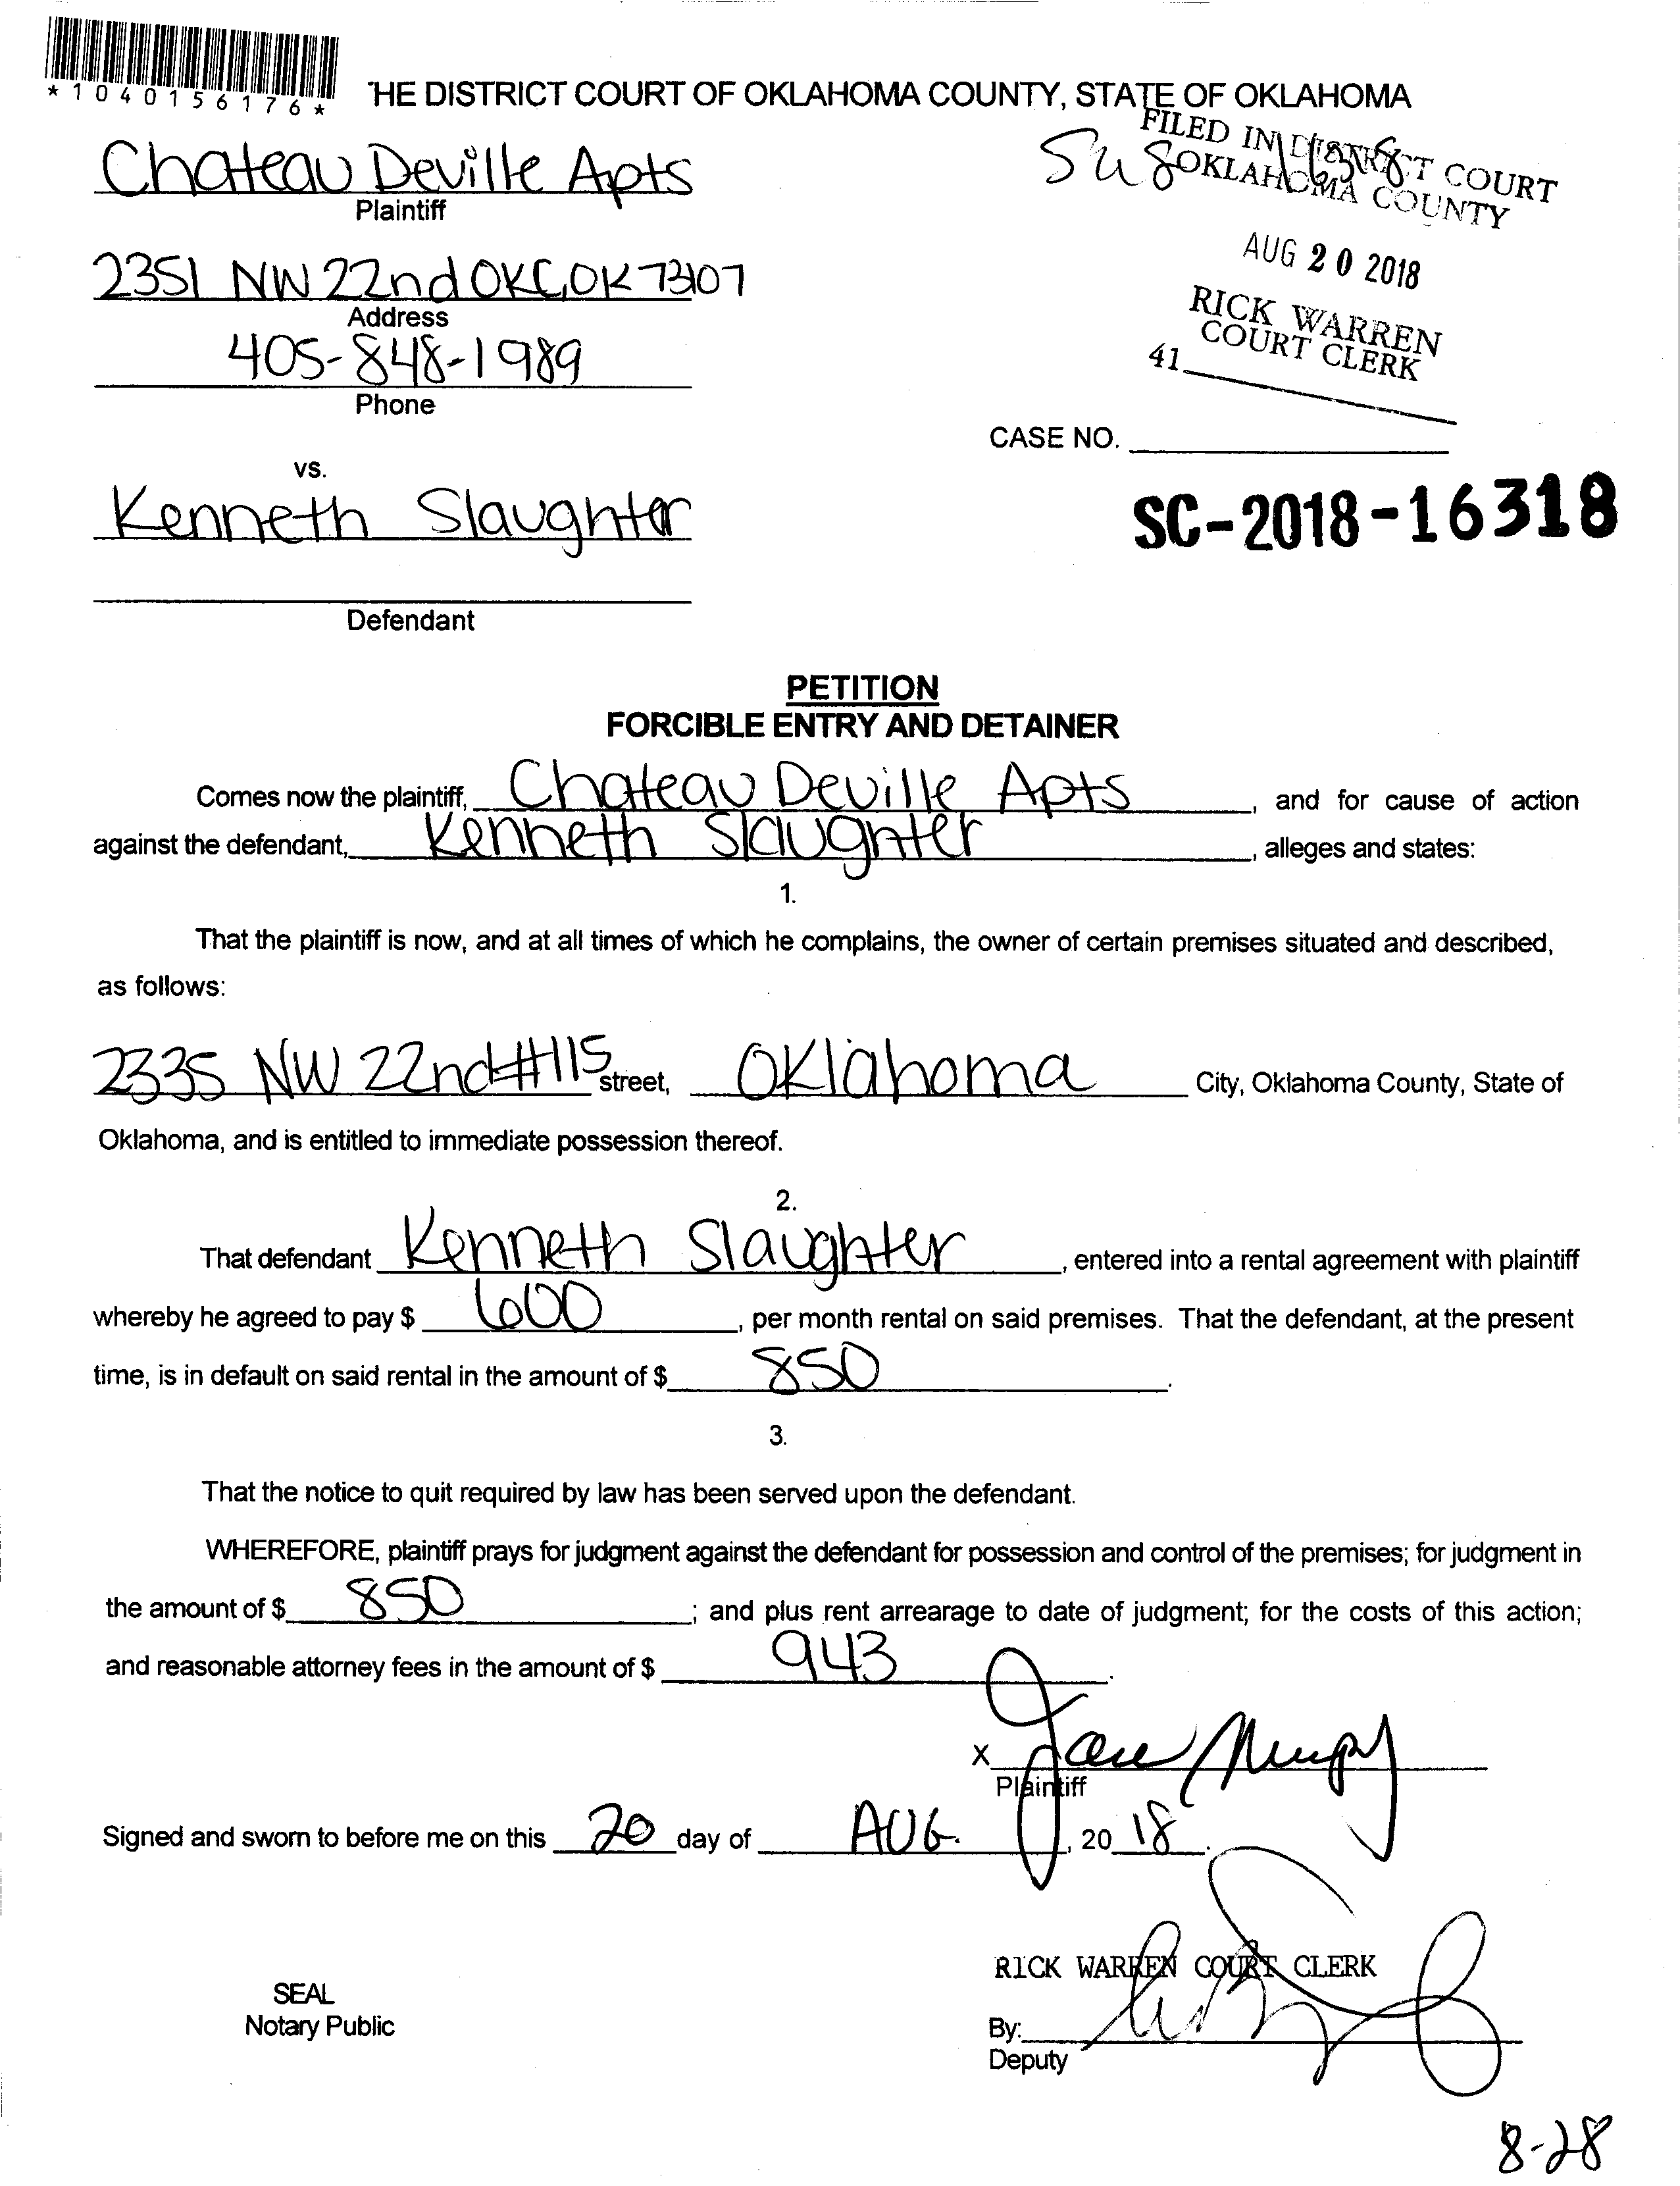 *1040156176*
HE DISTRICT COURT OF OKLAHOMA COUNTY, STATE OF OKLAHOMA
FILED IN DISTRICT COURT
OKLAHOMA COUNTY
Chateau Deville Apts
Plaintiff
AUG 20 2018
2351 NW 22nd OKC, OK 73107
Address
RICK WARREN
COURT CLERK
405-848-1989
41
Phone
CASE NO.
vs.
Kenneth Slaughter
SC-2018-16318
Defendant
PETITION
FORCIBLE ENTRY AND DETAINER
Comes now the plaintiff, Chateau Deville Apts, and for cause of action
against the defendant, Kenneth Slaughter, alleges and states:
1.
That the plaintiff is now, and at all times of which he complains, the owner of certain premises situated and described,
as follows:
2335 NW 22nd #115 street, Oklahoma City, Oklahoma County, State of
Oklahoma, and is entitled to immediate possession thereof.
2.
That defendant Kenneth Slaughter, entered into a rental agreement with plaintiff
whereby he agreed to pay $ 600, per month rental on said premises. That the defendant, at the present
time, is in default on said rental in the amount of $ 850.
3.
That the notice to quit required by law has been served upon the defendant.
WHEREFORE, plaintiff prays for judgment against the defendant for possession and control of the premises; for judgment in
the amount of $ 850; and plus rent arrearage to date of judgment; for the costs of this action;
and reasonable attorney fees in the amount of $ 943.
X
Plaintiff
Signed and sworn to before me on this 20 day of AUG., 2018.
RICK WARREN COURT CLERK
SEAL
Notary Public
By:
Deputy
8-28